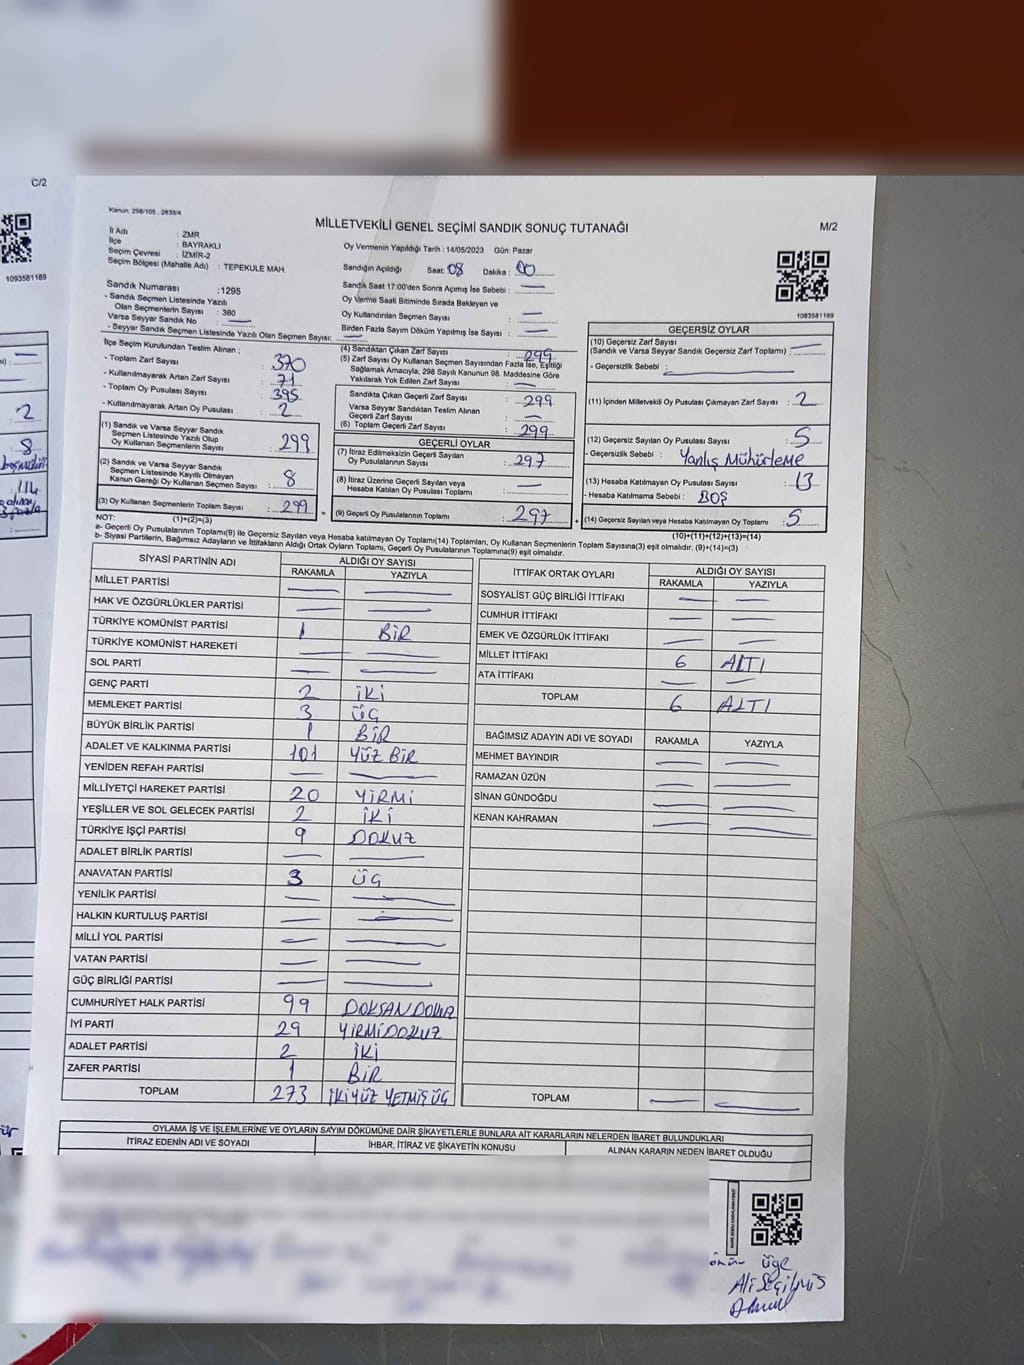 C/2
1093581169
Kanun: 298/105 , 2839/4
MİLLETVEKİLİ GENEL SEÇİMİ SANDIK SONUÇ TUTANAĞI
M/2
İl Adı : ZMR
İlçe : BAYRAKLI
Seçim Çevresi : İZMİR-2
Seçim Bölgesi (Mahalle Adı) : TEPEKULE MAH.
Oy Vermenin Yapıldığı Tarih : 14/05/2023 Gün: Pazar
Sandığın Açıldığı Saat: 08 Dakika : 00
Sandık Saat 17:00'den Sonra Açılmış İse Sebebi : —
Oy Verme Saati Bitiminde Sırada Bekleyen ve
Oy Kullandırılan Seçmen Sayısı : —
Birden Fazla Sayım Döküm Yapılmış İse Sayısı : —
1093581169
Sandık Numarası : 1295
- Sandık Seçmen Listesinde Yazılı
Olan Seçmenlerin Sayısı : 360
Varsa Seyyar Sandık No : —
- Seyyar Sandık Seçmen Listesinde Yazılı Olan Seçmen Sayısı: —
İlçe Seçim Kurulundan Teslim Alınan :
- Toplam Zarf Sayısı : 370
- Kullanılmayarak Artan Zarf Sayısı : 71
- Toplam Oy Pusulası Sayısı : 395
- Kullanılmayarak Artan Oy Pusulası : 2
(1) Sandık ve Varsa Seyyar Sandık
Seçmen Listesinde Yazılı Olup
Oy Kullanan Seçmenlerin Sayısı : 299
(2) Sandık ve Varsa Seyyar Sandık
Seçmen Listesinde Kayıtlı Olmayan
Kanun Gereği Oy Kullanan Seçmen Sayısı : 8
(3) Oy Kullanan Seçmenlerin Toplam Sayısı : 299
(4) Sandıktan Çıkan Zarf Sayısı : 299
(5) Zarf Sayısı Oy Kullanan Seçmen Sayısından Fazla İse, Eşitliği
Sağlamak Amacıyla, 298 Sayılı Kanunun 98. Maddesine Göre
Yakılarak Yok Edilen Zarf Sayısı : —
Sandıkta Çıkan Geçerli Zarf Sayısı : 299
Varsa Seyyar Sandıktan Teslim Alınan
Geçerli Zarf Sayısı : —
(6) Toplam Geçerli Zarf Sayısı : 299
GEÇERLİ OYLAR
(7) İtiraz Edilmeksizin Geçerli Sayılan
Oy Pusulasının Sayısı : 297
(8) İtiraz Üzerine Geçerli Sayılan veya
Hesaba Katılan Oy Pusulası Toplamı : —
(9) Geçerli Oy Pusulalarının Toplamı : 297
GEÇERSİZ OYLAR
(10) Geçersiz Zarf Sayısı
(Sandık ve Varsa Seyyar Sandık Geçersiz Zarf Toplamı) : —
- Geçersizlik Sebebi : —
(11) İçinden Milletvekili Oy Pusulası Çıkmayan Zarf Sayısı : 2
(12) Geçersiz Sayılan Oy Pusulası Sayısı : 5
- Geçersizlik Sebebi : Yanlış Mühürleme
(13) Hesaba Katılmayan Oy Pusulası Sayısı : 13
- Hesaba Katılmama Sebebi : BOŞ
(14) Geçersiz Sayılan veya Hesaba Katılmayan Oy Toplamı : 5
NOT: (1)+(2)=(3)
(10)+(11)+(12)+(13)=(14)
a- Geçerli Oy Pusulalarının Toplamı(9) ile Geçersiz Sayılan veya Hesaba katılmayan Oy Toplamı(14) Toplamları, Oy Kullanan Seçmenlerin Toplam Sayısına(3) eşit olmalıdır. (9)+(14)=(3)
b- Siyasi Partilerin, Bağımsız Adayların ve İttifakların Aldığı Ortak Oyların Toplamı, Geçerli Oy Pusulalarının Toplamına(9) eşit olmalıdır.
SİYASİ PARTİNİN ADI ALDIĞI OY SAYISI
RAKAMLA YAZIYLA
MİLLET PARTİSİ — —
HAK VE ÖZGÜRLÜKLER PARTİSİ — —
TÜRKİYE KOMÜNİST PARTİSİ 1 BİR
TÜRKİYE KOMÜNİST HAREKETİ — —
SOL PARTİ — —
GENÇ PARTİ 2 İKİ
MEMLEKET PARTİSİ 3 ÜÇ
BÜYÜK BİRLİK PARTİSİ 1 BİR
ADALET VE KALKINMA PARTİSİ 101 YÜZ BİR
YENİDEN REFAH PARTİSİ — —
MİLLİYETÇİ HAREKET PARTİSİ 20 YİRMİ
YEŞİLLER VE SOL GELECEK PARTİSİ 2 İKİ
TÜRKİYE İŞÇİ PARTİSİ 9 DOKUZ
ADALET BİRLİK PARTİSİ — —
ANAVATAN PARTİSİ 3 ÜÇ
YENİLİK PARTİSİ — —
HALKIN KURTULUŞ PARTİSİ — —
MİLLİ YOL PARTİSİ — —
VATAN PARTİSİ — —
GÜÇ BİRLİĞİ PARTİSİ — —
CUMHURİYET HALK PARTİSİ 99 DOKSAN DOKUZ
İYİ PARTİ 29 YİRMİDOKUZ
ADALET PARTİSİ 2 İKİ
ZAFER PARTİSİ 1 BİR
TOPLAM 273 İKİYÜZ YETMİŞ ÜÇ
İTTİFAK ORTAK OYLARI ALDIĞI OY SAYISI
RAKAMLA YAZIYLA
SOSYALİST GÜÇ BİRLİĞİ İTTİFAKI — —
CUMHUR İTTİFAKI — —
EMEK VE ÖZGÜRLÜK İTTİFAKI — —
MİLLET İTTİFAKI 6 ALTI
ATA İTTİFAKI — —
TOPLAM 6 ALTI
BAĞIMSIZ ADAYIN ADI VE SOYADI RAKAMLA YAZIYLA
MEHMET BAYINDIR — —
RAMAZAN ÜZÜN — —
SİNAN GÜNDOĞDU — —
KENAN KAHRAMAN — —
TOPLAM — —
OYLAMA İŞ VE İŞLEMLERİNE VE OYLARIN SAYIM DÖKÜMÜNE DAİR ŞİKAYETLERLE BUNLARA AİT KARARLARIN NELERDEN İBARET BULUNDUKLARI
İTİRAZ EDENİN ADI VE SOYADI İHBAR, İTİRAZ VE ŞİKAYETİN KONUSU ALINAN KARARIN NEDEN İBARET OLDUĞU
üye
Ali Seçilmiş